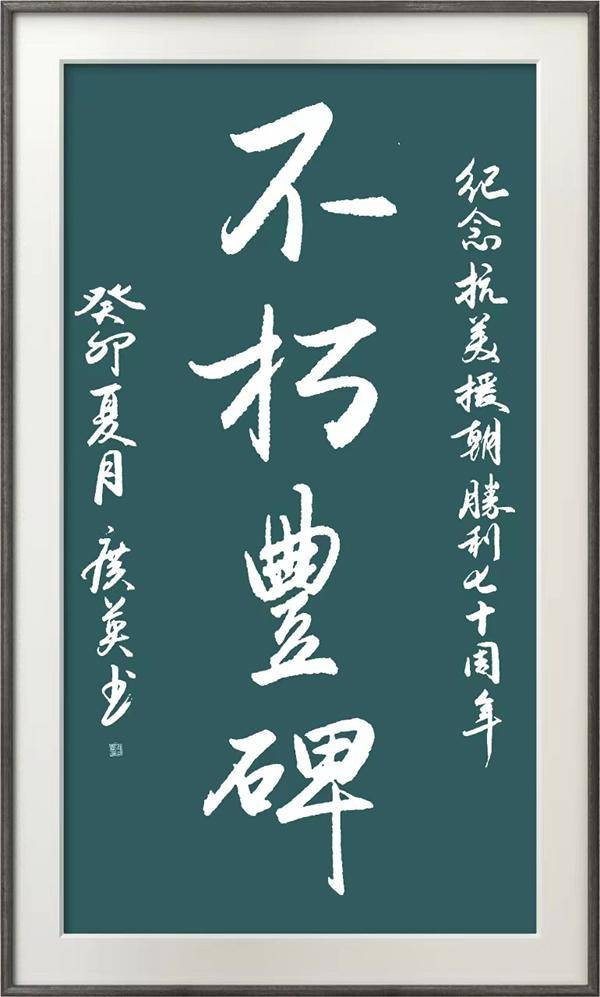 紀念抗美援朝勝利七十周年
不朽豐碑
癸卯夏月 廣英书